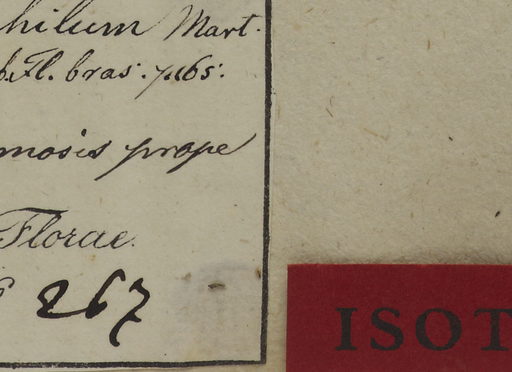 hilum Mart.
b. Fl. bras. p. 165.
mosis prope
Florae.
267
ISOT